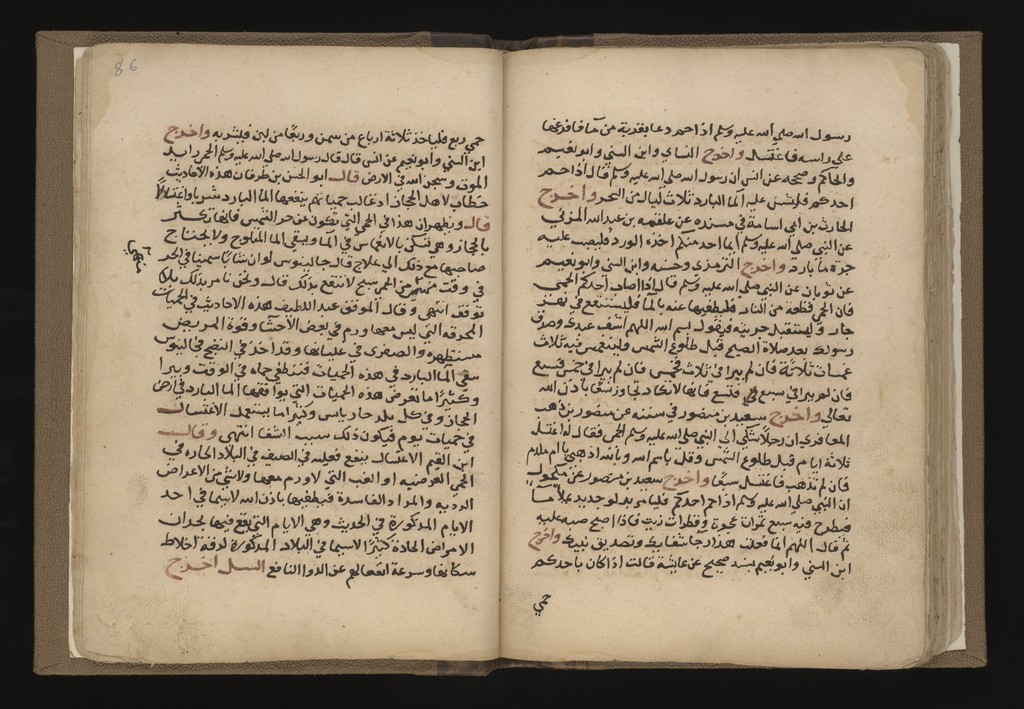 رسول الله صلى الله عليه وسلم اذا حم دعا بقربة من ما فافرغها
على راسه فاغتسل واخرج النساي وابن السني وابو نعيم
والحاكم وصححه عن انس ان رسول الله صلى الله عليه وسلم قال اذا حم
احدكم فليشن عليه الما البارد ثلاث ليال من السحر واخرج
الحارث بن ابي اسامة في مسنده عن علقمه بن عبد الله المزني
عن النبي صلى الله عليه وسلم ايما احد منكم اخذه الورد فليصب عليه
جرة ما بارد واخرج الترمذي وحسنه وابن السني وابو نعيم
عن ثوبان عن النبي صلى الله عليه وسلم قال اذا اصاب احدكم الحمى
فان الحمى قطعه من النار فليطفيها عنه بالما فليستنقع في نهر
جار وليستقبل جريته فيقول بسم الله اللهم اشف عبدك وصدق
رسولك بعد صلاة الصبح قبل طلوع الشمس ولينغمس فيه ثلاث
غمسات ثلاثة فان لم يبرا في ثلاث فخمس فان لم يبرا في خمس فسبع
فان لم يبرا في سبع فتسع فانها لا تكاد تجاوز تسعا باذن الله
تعالى واخرج سعيد بن منصور في سننه عن منصور بن
المعافري ان رجلا شكى الى النبي صلى الله عليه وسلم الحمى فقال له اغتسل
ثلاثة ايام قبل طلوع الشمس وقل باسم الله وبالله اذهبي يا ام ملدم
فان لم تذهب فاغتسل سبعا واخرج سعيد بن منصور عن مكحول
ان النبي صلى الله عليه وسلم اذا حم احدكم فليامر بدلو جديد يملا ما
فيطرح فيه سبع تمرات عجوة وقطرات زيت فاذا اصبح صبه عليه
ثم قال اللهم انما فعلت هذا رجا شفايك وتصديق نبيك واخرج
ابن السني وابو نعيم بسند صحيح عن عايشة قالت اذا كان باحدكم
حمى
86
حمى ربع فلياخذ ثلاثة ارباع من سمن وربعا من لبن فليشربه واخرج
ابن السني وابو نعيم عن انس قال قال رسول الله صلى الله عليه وسلم الحمى رايد
الموت وسجن الله في الارض قال ابو الحسن بن طرخان هذه الاحاديث
خطاب لاهل الحجاز اذ غالب حمياتهم ينفعها الما البارد شربا واغتسالا
قال ويظهر ان هذا في الحمى التي تكون عن حر الشمس فانها تكثر
بالحجاز وهي تسكن بالانغماس في الما ويسقى الما المثلوج ولا يحتاج
صاحبها مع ذلك الى علاج قال جالينوس لو ان شابا سمينا في الحر
في وقت منتهى من الحمى سبح لانتفع بذلك قال ونحن نامر بذلك بلا
منتهى
توقف انتهى وقال الموفق عبد اللطيف هذه الاحاديث في الحميات
المحرقه التي ليس معها ورم في بعض الاحشا وقوة المريض
مستظهرة والصفرى في غليانها وقد اخذ في النضج في البوس
سقي الما البارد في هذه الحميات فتنطفي حماه في الوقت ويبرا
وكثيرا ما تعرض هذه الحميات التي يوافقها الما البارد في ارض
الحجاز وفي كل بلد حار يابس وكثيرا ما يستعمل الاغتسال
في حميات يوم فيكون ذلك سبب الشفا انتهى وقال
ابن القيم الاغتسال ينفع فعله في الصيف في البلاد الحاره في
الحمى العرضيه او الغب التي لا ورم معها ولا شي من الاعراض
الرديه والمواد الفاسدة فيطفيها باذن الله لا سيما في احد
الايام المذكورة في الحديث وهي الايام التي يقع فيها بحران
الامراض الحادة كثيرا لا سيما في البلاد المذكورة لرقة اخلاط
سكانها وسرعة انفعالهم عن الدوا النافع السل اخرج